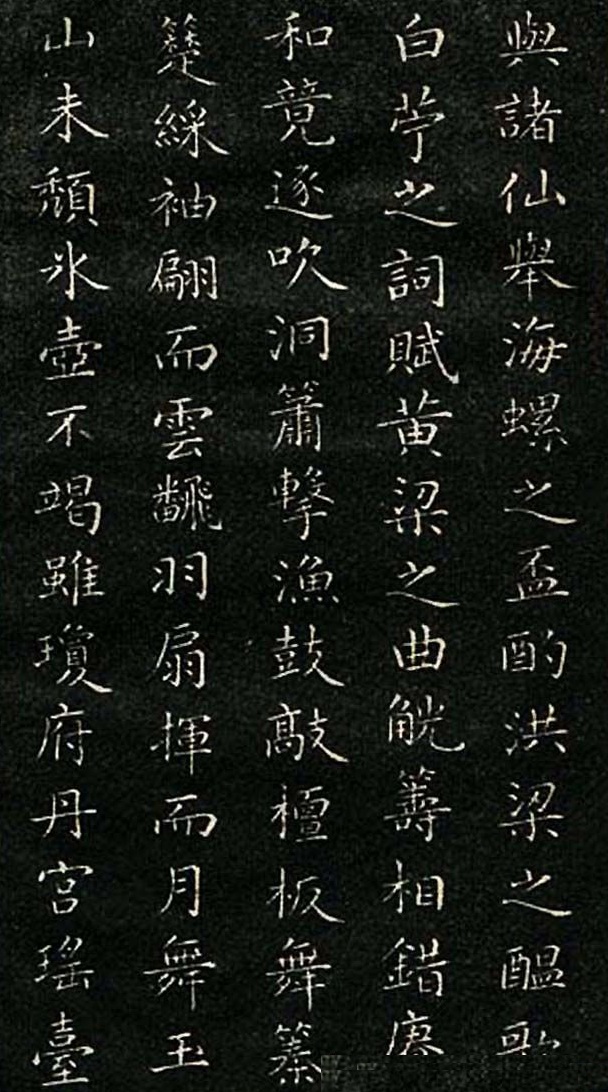 與諸仙舉海螺之盃酌洪梁之醖歌
白苧之詞賦黃梁之曲觥籌相錯賡
和竟逐吹洞簫擊漁鼓敲檀板舞
綵袖翩而雲飜羽扇揮而月舞玉
山未頹氷壺不竭雖瓊府丹宮瑤臺